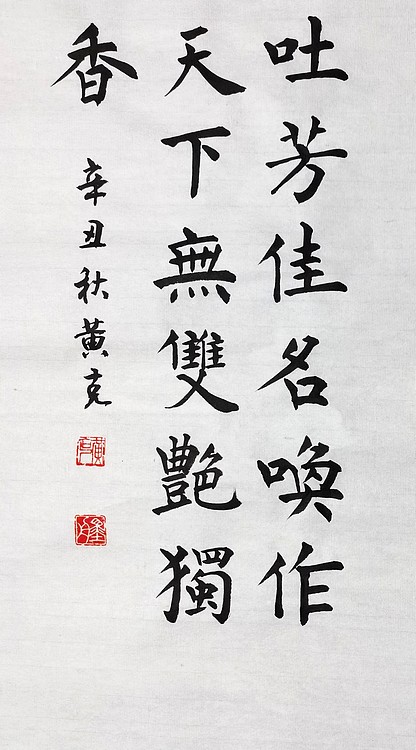 吐芳佳名喚作
天下無雙艷獨
香
辛丑秋黃克